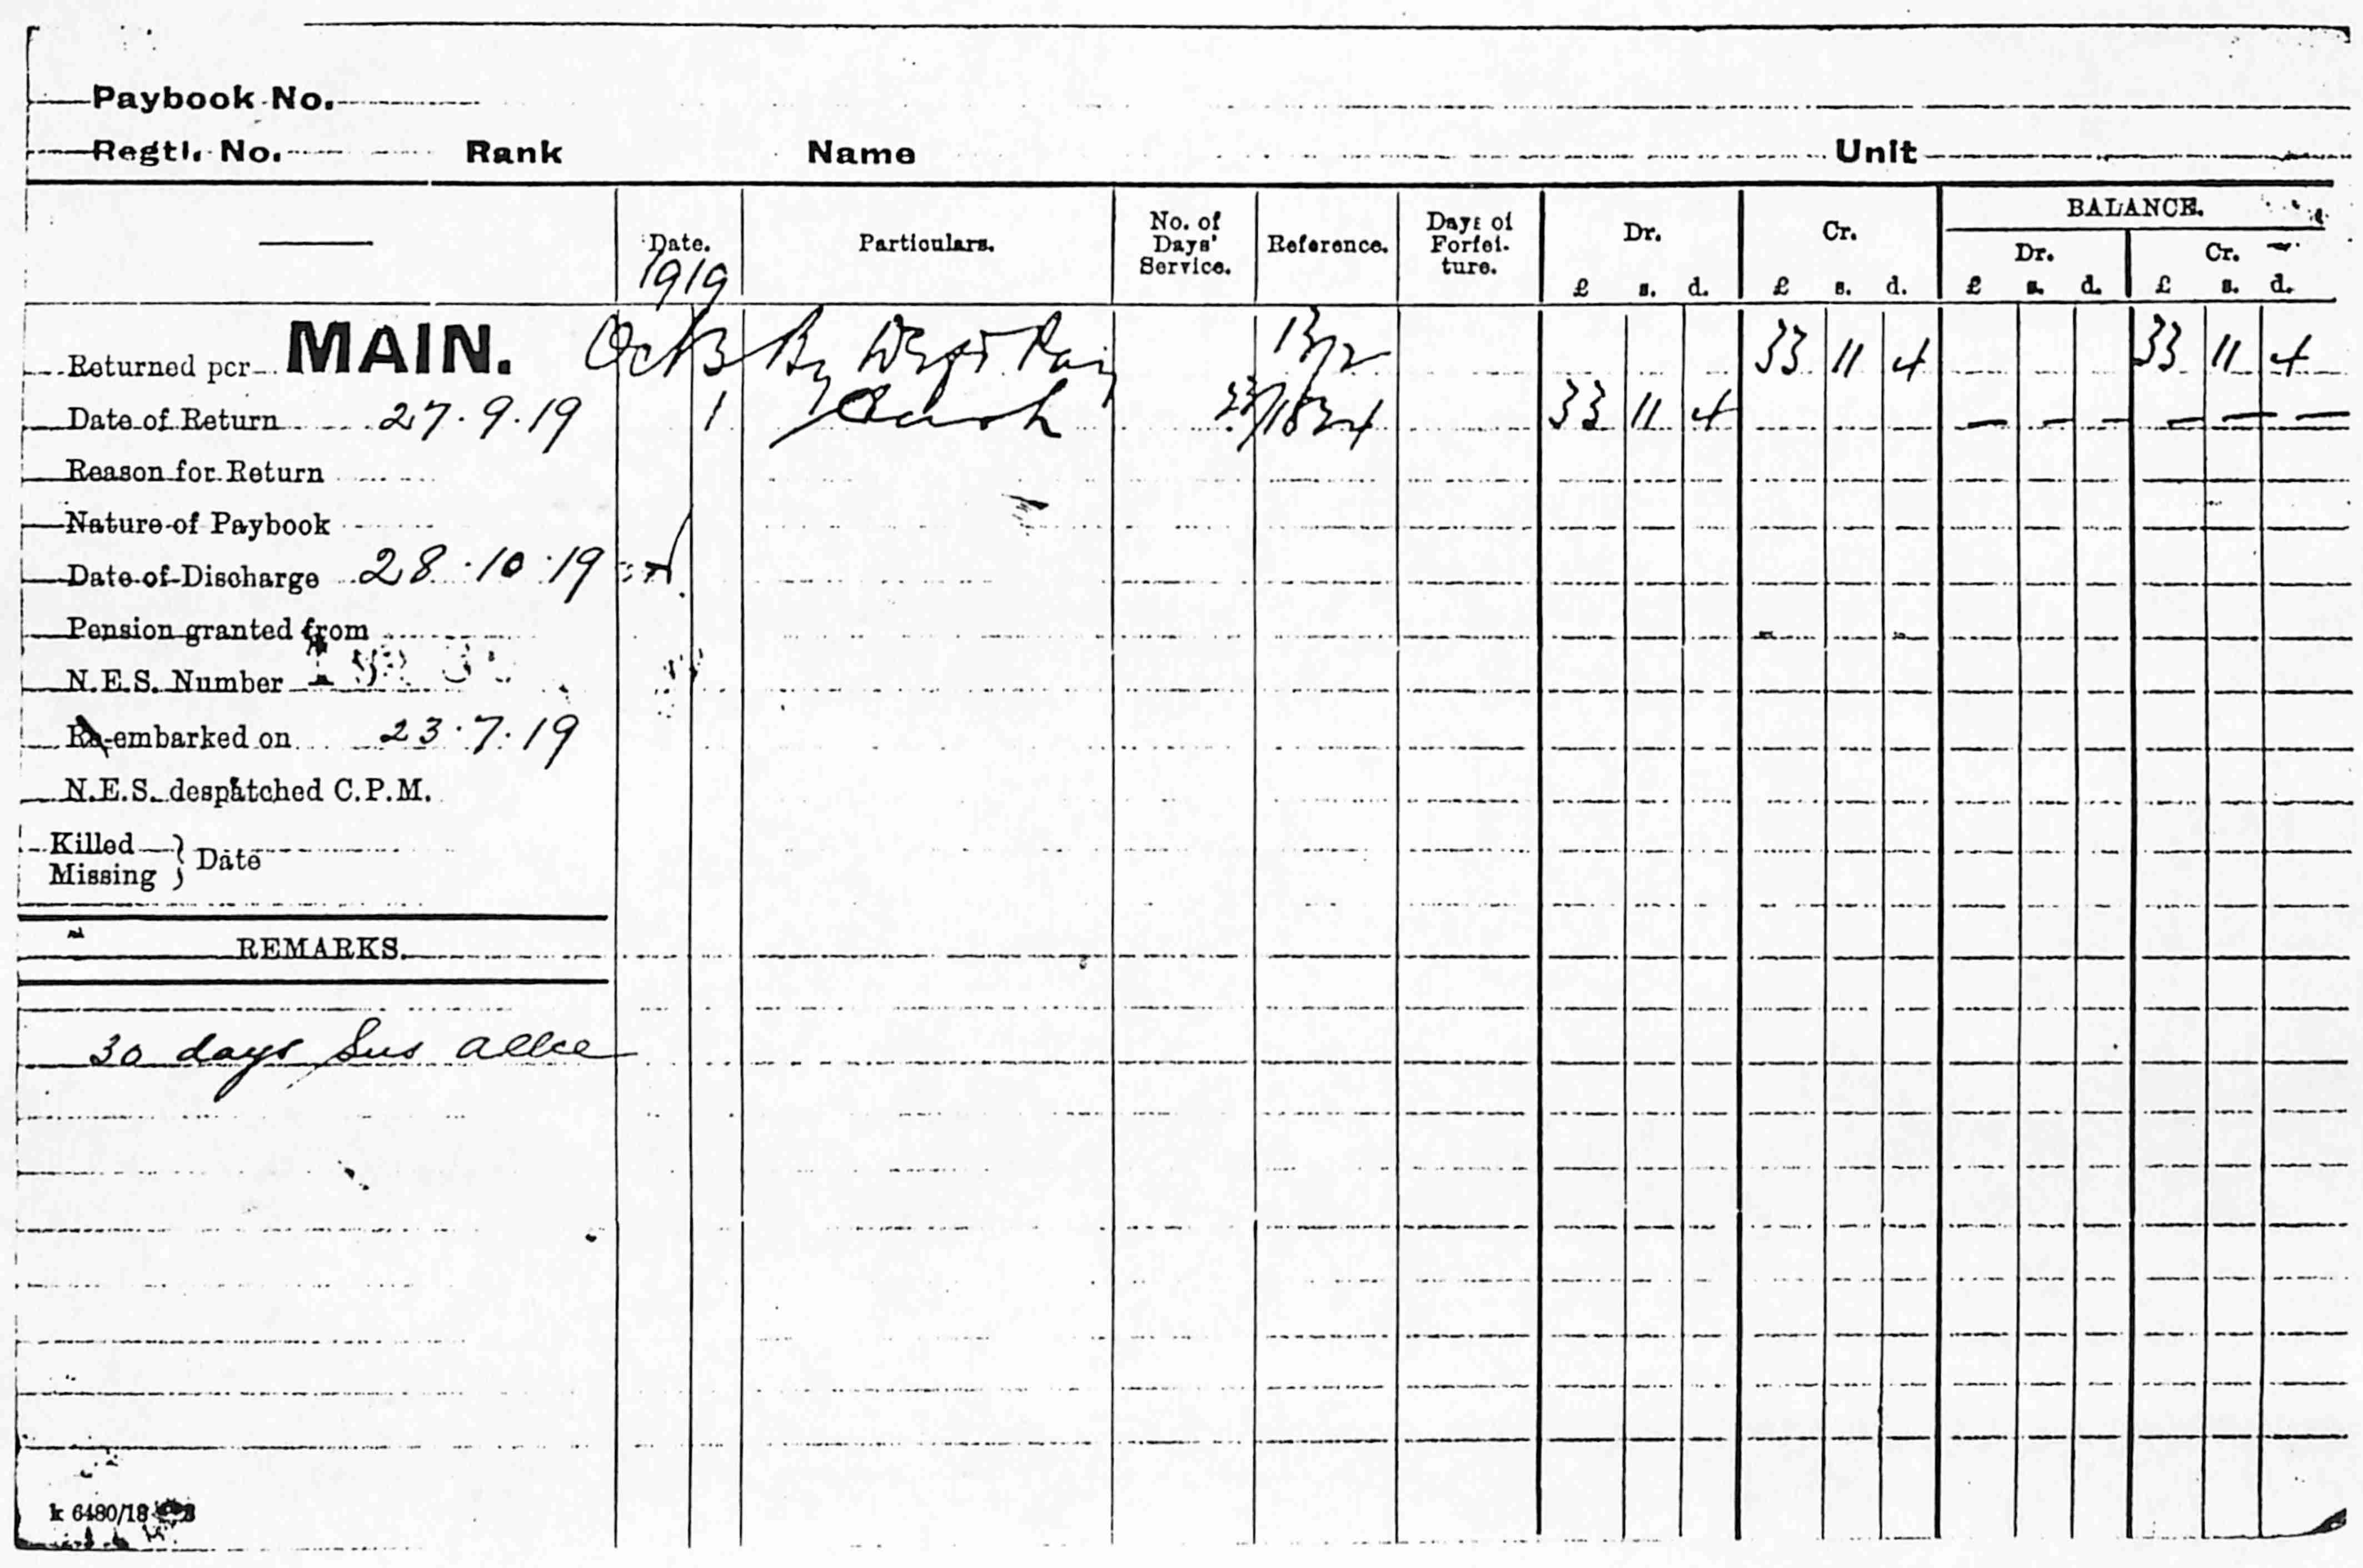 Paybook No.
Regtl. No. Rank Name Unit
Date. Particulars. No. of Days' Service. Reference. Days of Forfei-ture. Dr. Cr. BALANCE.
Dr. Cr.
£ s. d. £ s. d. £ s. d. £ s. d.
1919
Returned per MAIN. Oct 3 By Pay 33 11 4 33 11 4
Date of Return 27.9.19 1 Cash 33 11 4 — — — — — —
Reason for Return
Nature of Paybook
Date of Discharge 28.10.19
Pension granted from
N.E.S. Number
Re-embarked on 23.7.19
N.E.S. despatched C.P.M.
Killed
Missing } Date
REMARKS.
30 days Sus allce
k 6480/18